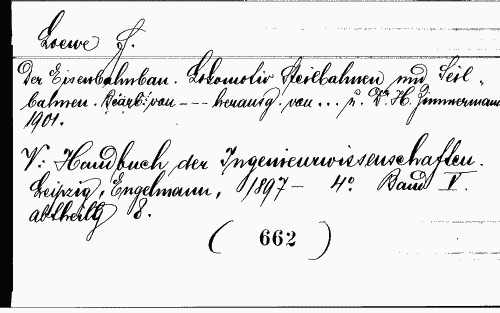 Loewe F.
Der Eisenbahnbau. Lokomotiv Steilbahnen und Seil-
bahnen. Bearb. von --- herausg. von ... u. Dr. H. Zimmermann
1901.
V: Handbuch der Ingenieurwissenschaften.
Leipzig, Engelmann, 1897- 4º Band V.
abtheilg 8.
( 662 )